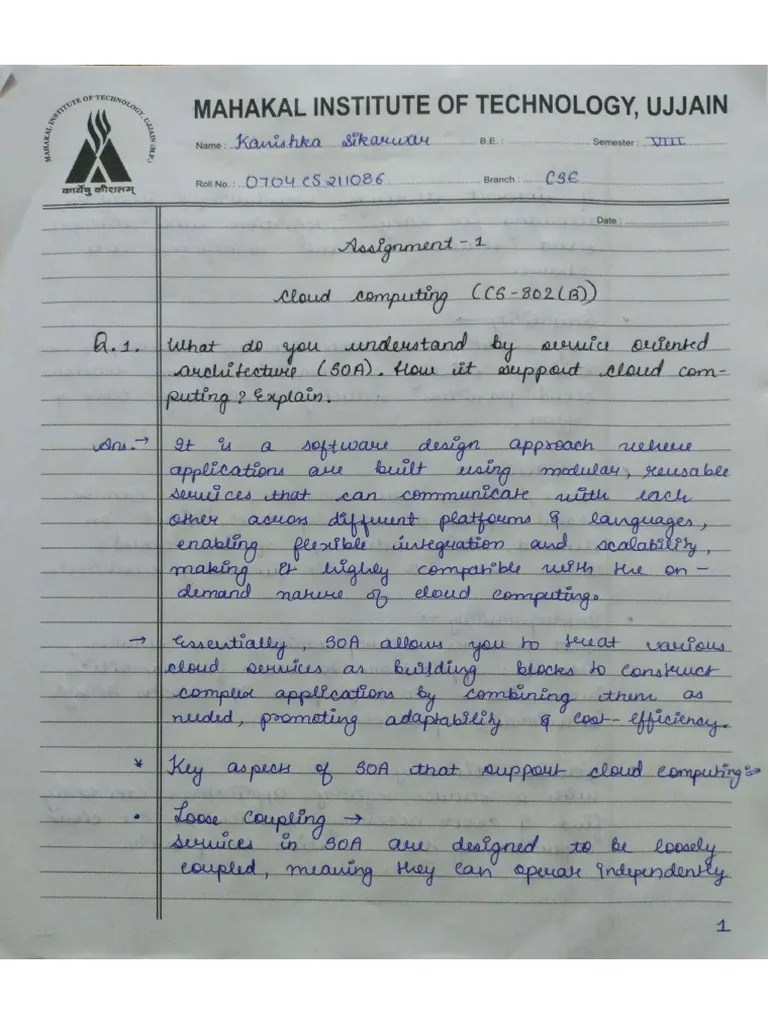 MAHAKAL INSTITUTE OF TECHNOLOGY, UJJAIN (M.P.)
कार्येषु कौशलम्
MAHAKAL INSTITUTE OF TECHNOLOGY, UJJAIN
Name : Kanishka Sikarwar B.E. : Semester : VIII
Roll No. : 0704 CS 211086 Branch : CSE
Date :
Assignment - 1
Cloud computing (CS-802(B))
Q.1. What do you understand by service oriented
architecture (SOA). How it support cloud com-
puting? Explain.
Ans. → It is a software design approach where
applications are built using modular, reusable
services that can communicate with each
other across different platforms & languages,
enabling flexible integration and scalability,
making it highly compatible with the on-
demand nature of cloud computing.
→ Essentially, SOA allows you to treat various
cloud services as building blocks to construct
complex applications by combining them as
needed, promoting adaptability & cost-efficiency.
* Key aspects of SOA that support cloud computing:-
• Loose Coupling →
services in SOA are designed to be loosely
coupled, meaning they can operate independently
1